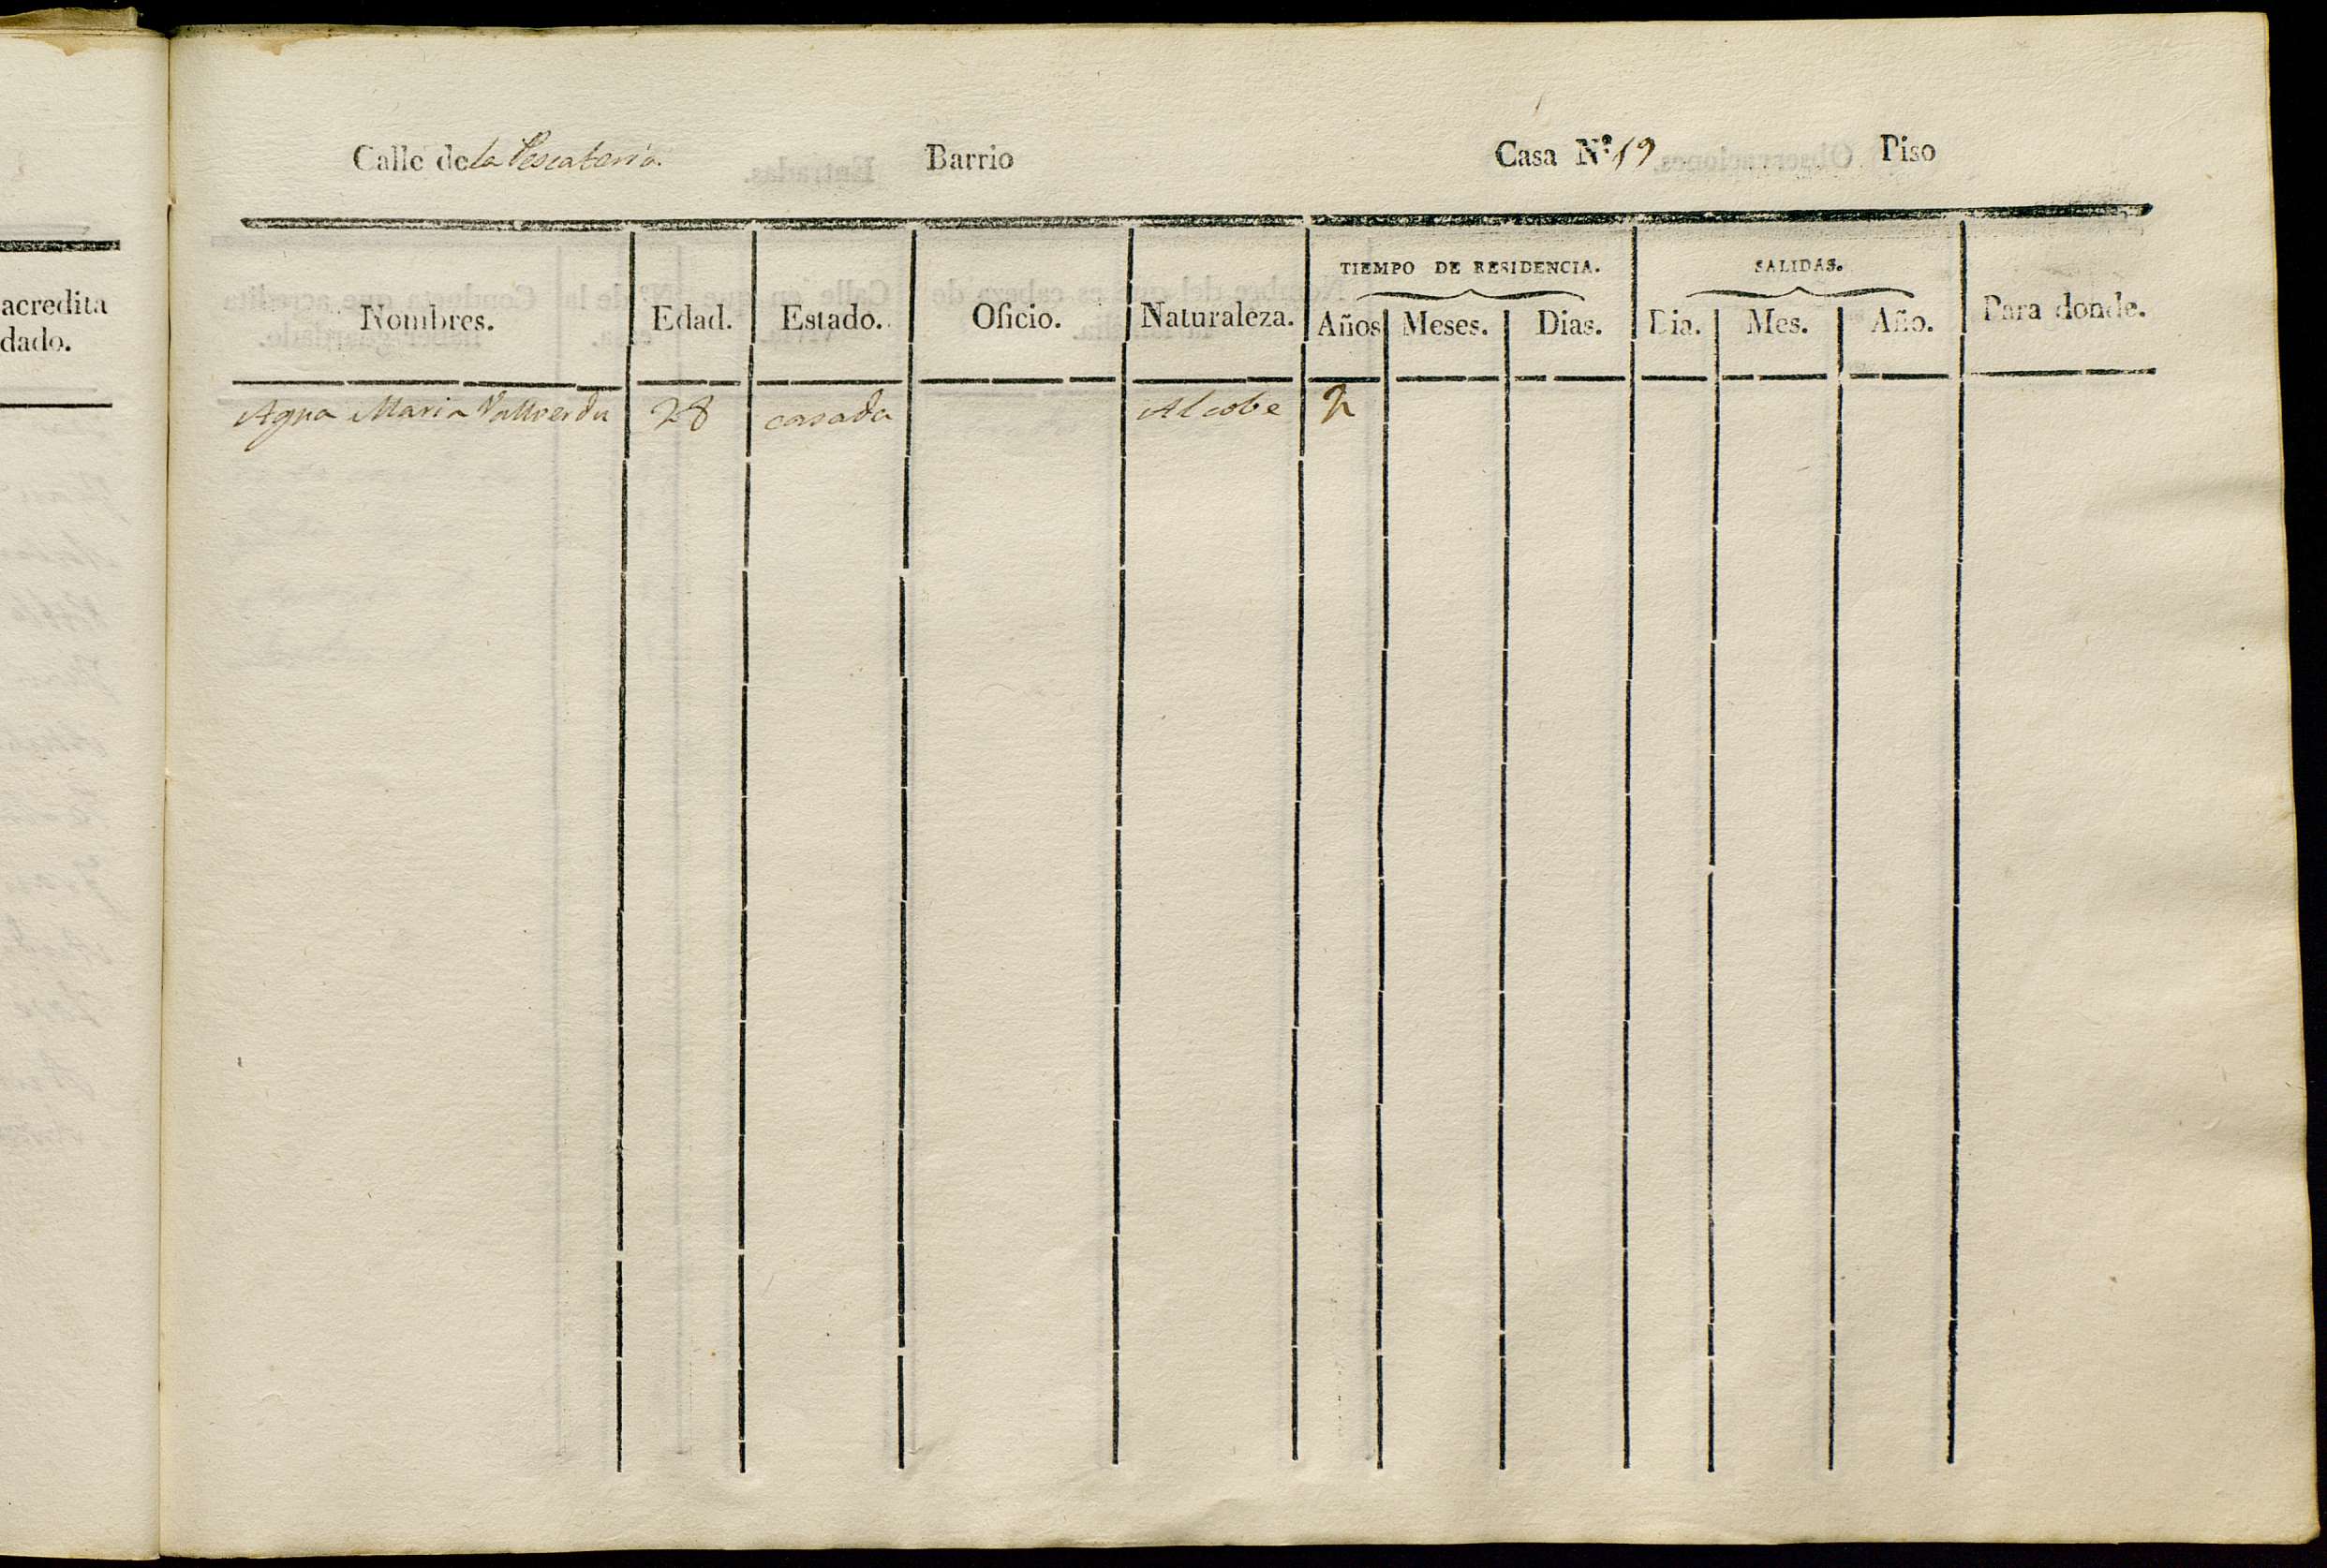 Calle de la Pescateria Barrio Casa N.º 19 Piso
TIEMPO DE RESIDENCIA. SALIDAS.
Nombres. Edad. Estado. Oficio. Naturaleza. Años Meses. Dias. Dia. Mes. Año. Para donde.
Agna Maria Vallverdu 28 casada Alcobe 2
acredita
dado.